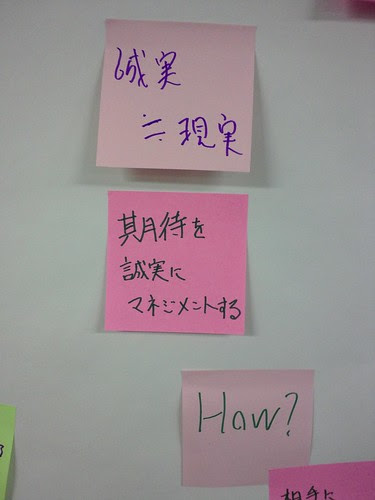 誠実
≒現実
期待を
誠実に
マネジメントする
How?
相手に